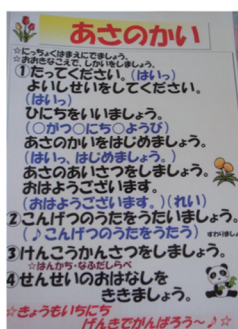 あさのかい
☆にっちょくはまえにでましょう。
☆おおきなこえで、しかいをしましょう。
①たってください。(はいっ)
よいしせいをしてください。
(はいっ)
ひにちをいいましょう。
(○がつ○にち○ようび)
あさのかいをはじめましょう。
(はいっ、はじめましょう。)
あさのあいさつをしましょう。
おはようございます。
(おはようございます。)(れい)
②こんげつのうたをうたいましょう。
(♪こんげつのうたをうたう)
すわりましょ
③けんこうかんさつをしましょう。
☆はんかち・なふだしらべ
④せんせいのおはなしを
ききましょう。
☆きょうもいちにち
げんきでがんばろう〜♪☆